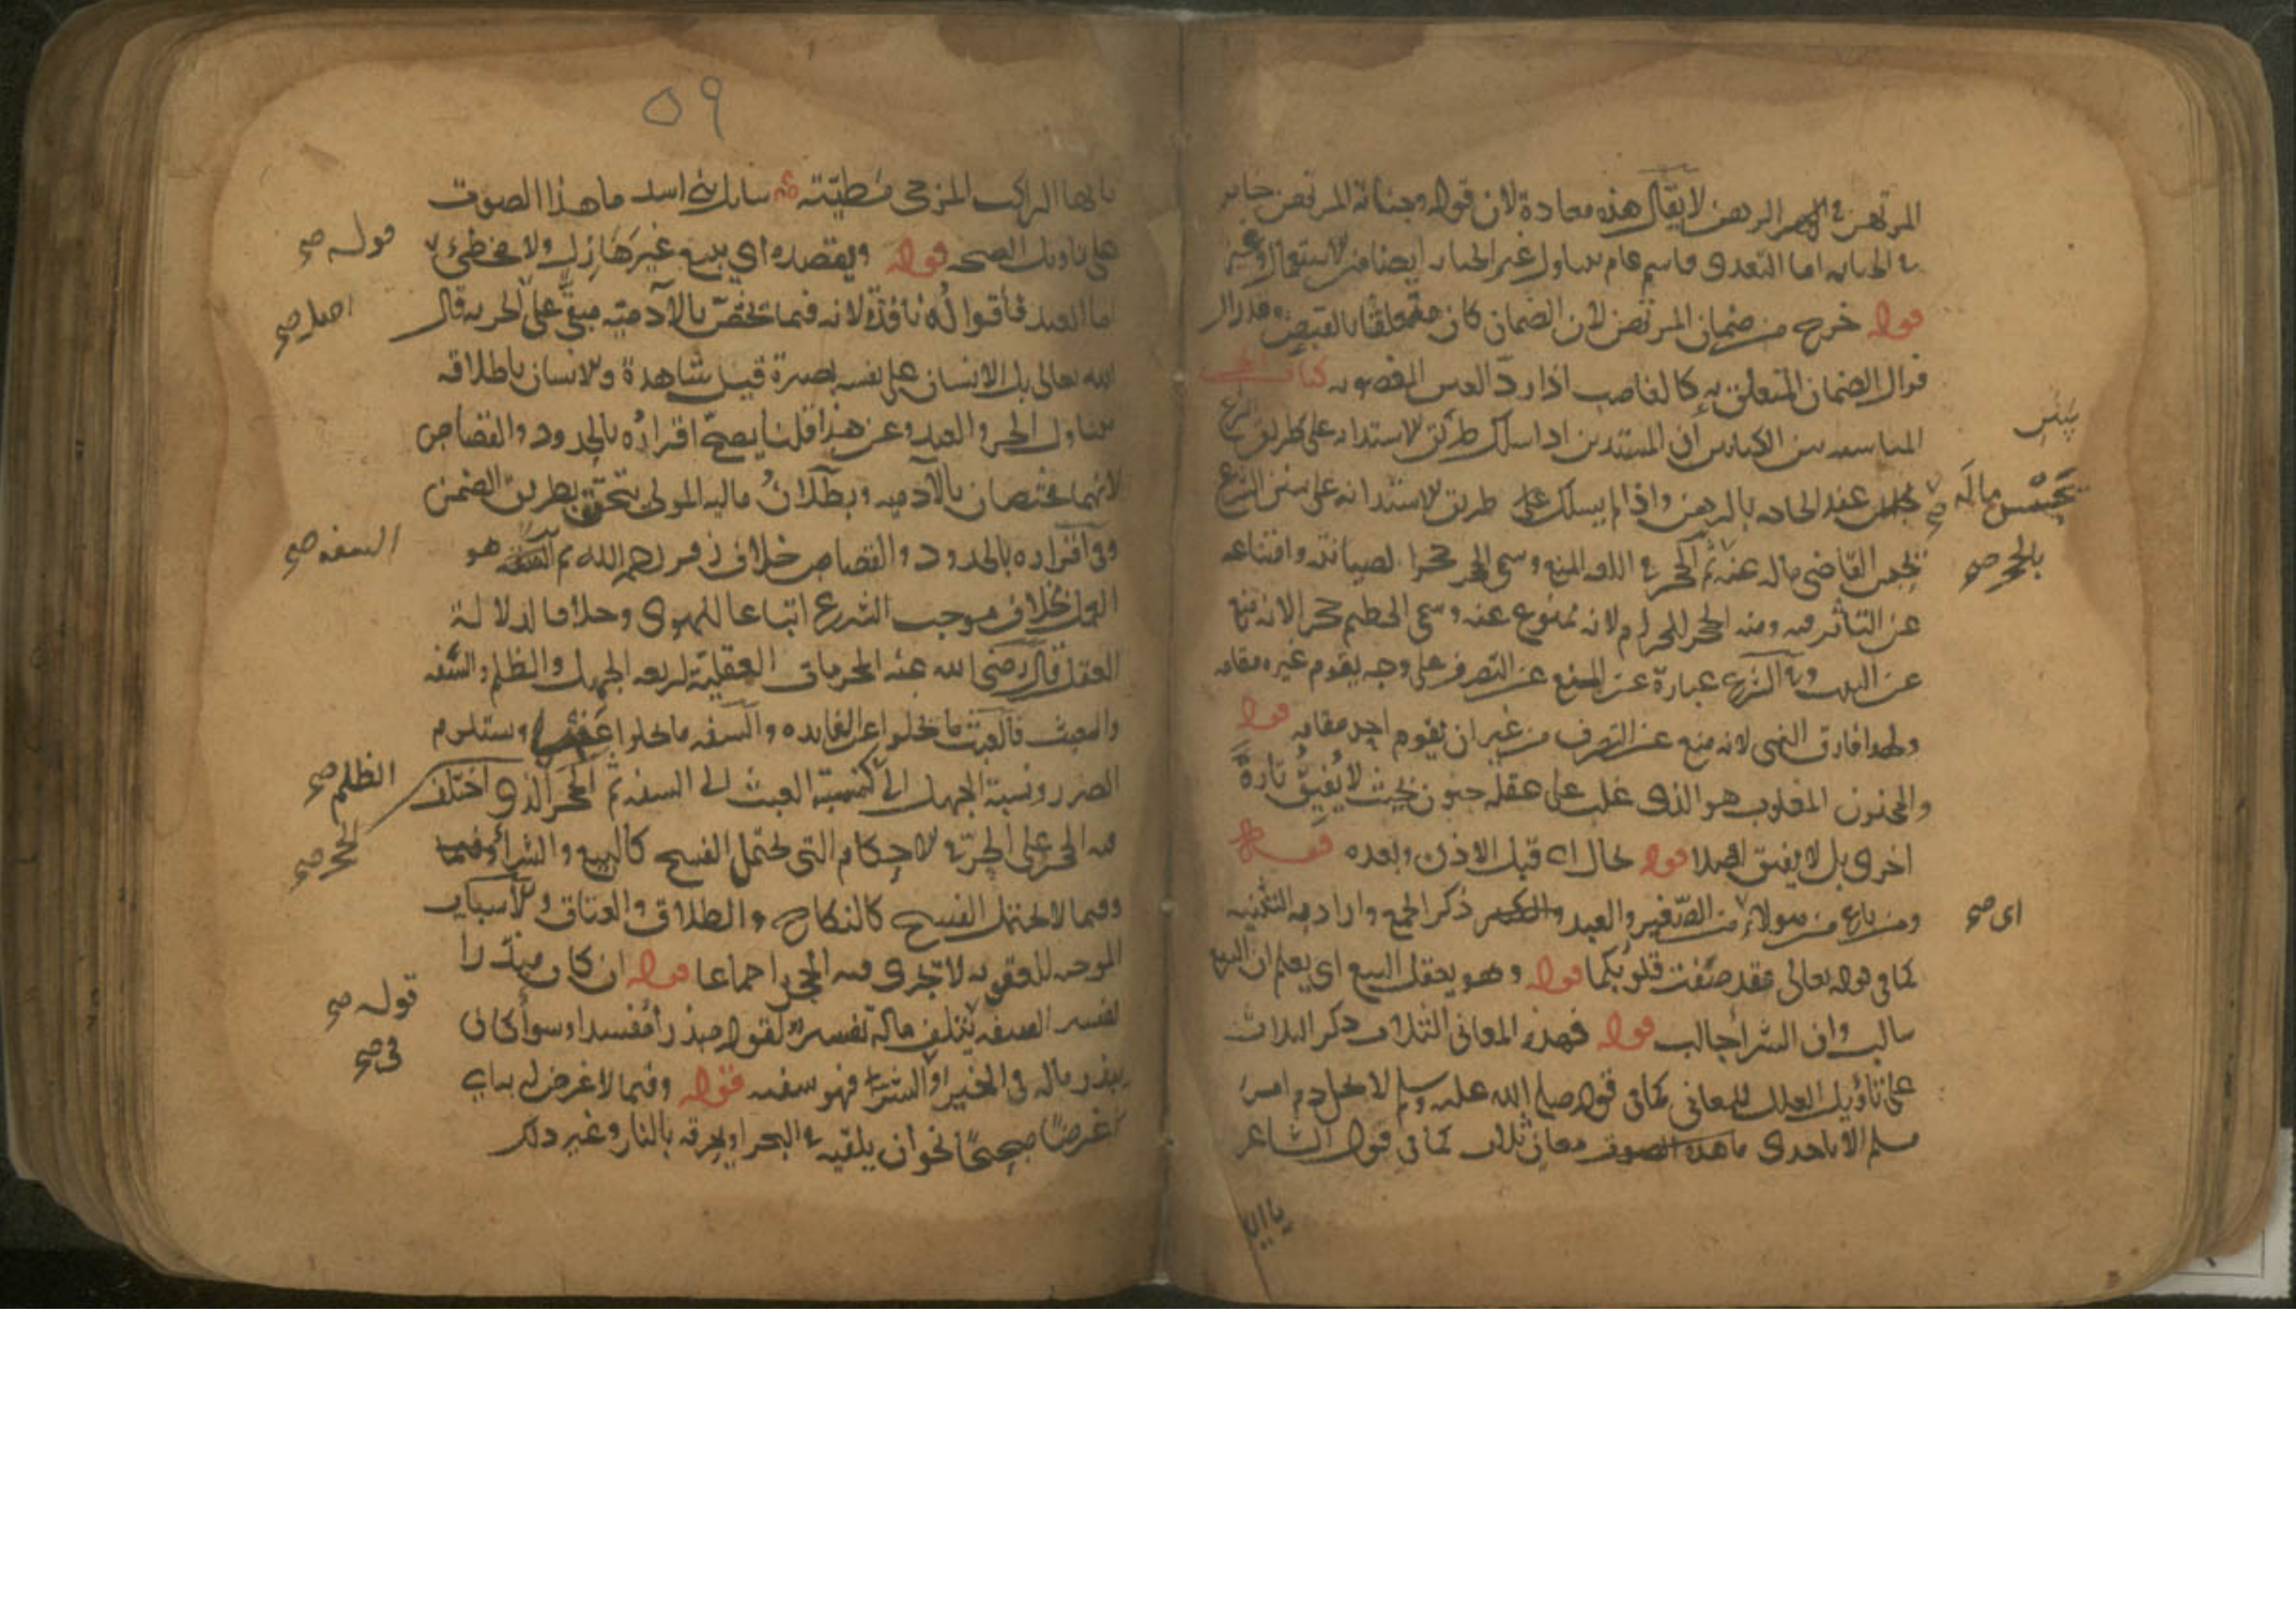 المرتهن في الرهن لا يقال هذه معادة لان قوله وجناية المرتهن
في الجنايه اما التعدى فاسم عام يتناول غير الجنايه ايضا من الاستعمال وغيره
قوله خرج من ضمان المرتهن لان الضمان كان متعلقا بالقبض وقد زال
فزال الضمان المتعلق به كالغاصب اذا رد العين المغصوبه كتاب الحجر
المناسبه بين الكتابين ان المستدين اذا سلك طريق الاستدانه على طريق الشرع
عقد الحاجه بالرهن واذا لم يسلك طريق الاستدانه على سنن الشرع
يحبس القاضى ماله عنه ثم الحجر في اللغه المنع وسمى الحجر حجرا لصيانته وامتناعه
عن التأثر فيه ومنه الحجر للحرام لانه ممنوع عنه وسمى الحطيم حجرا لانه منع
عن البيت وفي الشرع عبارة عن المنع عن التصرف على وجه يقوم غيره مقامه
ولهذا فارق النهى لانه منع عن التصرف من غير ان يقوم احد مقامه قوله
والمجنون المغلوب هو الذى غلب على عقله جنون بحيث لا يفيق تارة
اخرى بل لا يفيق اصلا قوله بحال اى قبل الاذن وبعده قوله
ومن باع من هولاء من الصغير والعبد ذكر الجمع واراد به التثنيه
كما فى قوله تعالى فقد صغت قلوبكما قوله وهو يعقل البيع اى يعلم ان البيع
سالب وان الشرا جالب قوله فهذه المعانى الثلاث ذكر الثلاث
على تأويل العلل المعانى كما فى قوله صلى الله عليه وسلم لا يحل دم امرئ
مسلم الا باحدى معان ثلاث كما فى قول الشاعر
ماله صح
بالحجر صح
اى صح
يا ايها
٥٩
يا ايها الراكب المزجى مطيته سايل بنى اسد ما هذا الصوت
على تاويل الصيحه قوله ويقصده اى بيع غير هازل ولا مخطئ
اما العبد فاقواله نافذة لانه فيما يختص بالآدميه مبقى على الحريه قال
الله تعالى بل الانسان على نفسه بصيرة قيل شاهدة والانسان باطلاقه
يتناول الحر والعبد وعن هذا قلنا يصح اقراره بالحدود والقصاص
لانهما مختصان بالآدميه وبطلان ماليه المولى يتحقق بطريق الضمن
وفى اقراره بالحدود والقصاص خلاف زفر رحمه الله ثم هو
العمل بخلاف موجب الشرع اتباعا للهوى وخلافا لدلالة
العقل قال رضى الله عنه المحرمات العقلية اربعه الجهل والظلم والسفه
والعبث فالعبث ما يخلوا عن الفايده والسفه ما يخلوا ويستلزم
الضرر ونسبة الجهل الى كنسبة العبث الى السفه ثم الحجر الذى اختلف
فيه الحجر على الحر في الاحكام التى تحتمل الفسخ كالبيع والشرا
وفيما لا يحتمل الفسخ كالنكاح والطلاق والعتاق والاسباب
الموجبه للعقوبه لا يجرى فيه الحجر اجماعا قوله ان كان مبذرا
تفسير السفه يتلف ماله تفسير لقوله مبذرا مفسدا وسوأ كان
يبذر ماله فى الخير او الشر فهو سفيه قوله وفيما لا غرض له به اى
غرضا صحيحا نحو ان يلقيه في البحر او يحرقه بالنار وغير ذلك
قوله صح
اصل صح
السفه صح
الظلم صح
الحجر صح
قوله صح
فى صح